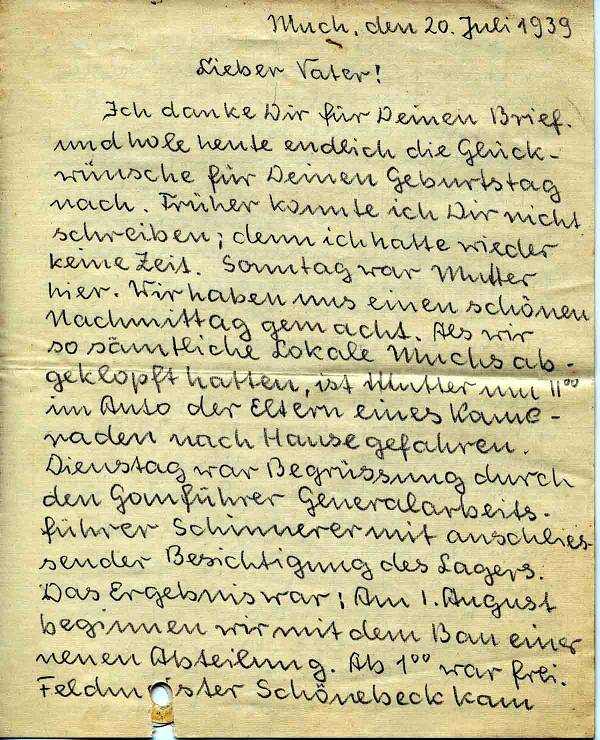 Much, den 20. Juli 1939
Lieber Vater!
Ich danke Dir für Deinen Brief.
und hole heute endlich die Glück-
wünsche für Deinen Geburtstag
nach. Früher konnte ich Dir nicht
schreiben; denn ich hatte wieder
keine Zeit. Sonntag war Mutter
hier. Wir haben uns einen schönen
Nachmittag gemacht. Als wir
so sämtliche Lokale Muchs ab-
geklopft hatten, ist Mutter um 11⁰⁰
im Auto der Eltern eines Kame-
raden nach Hause gefahren.
Dienstag war Begrüssung durch
den Gauführer Generalarbeits-
führer Schinnerer mit anschlies
sender Besichtigung des Lagers.
Das Ergebnis war: Am 1. August
beginnen wir mit dem Bau einer
neuen Abteilung. Ab 1⁰⁰ war frei.
Feldmeister Schönebeck kam